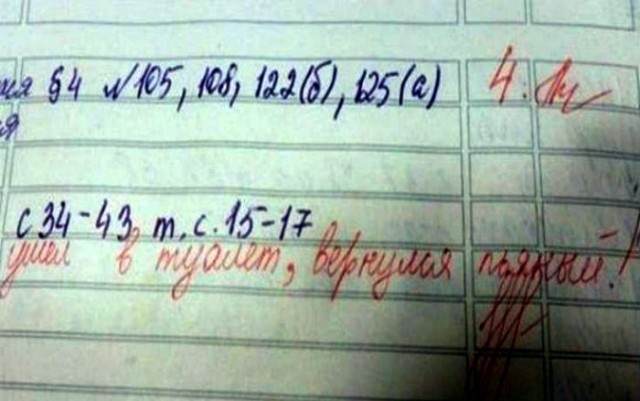 §4 №105, 108, 122(б), 125(а) 4.
я
с 34-43, т. с. 15-17
ушел в туалет, вернулся пьяный!